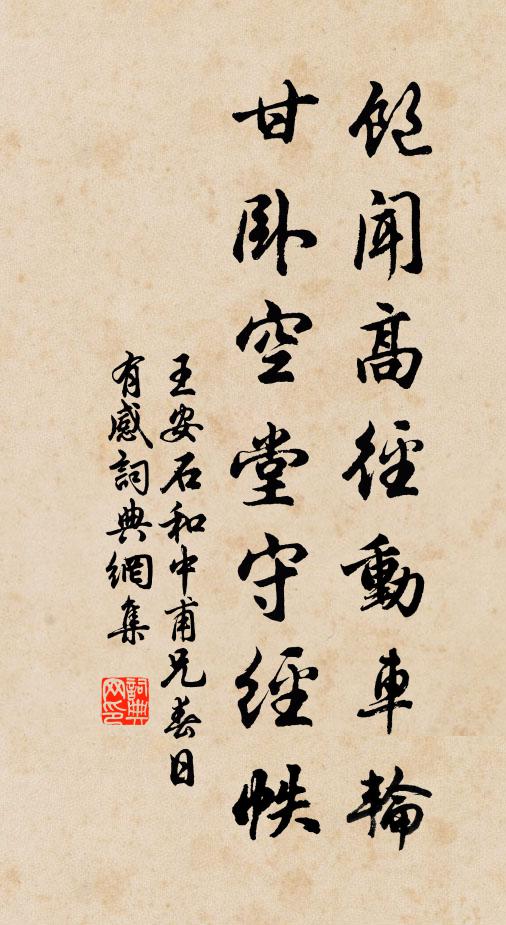 飽聞高徑動車輪
甘臥空堂守經帙
王安石和中甫兄春日
有感詞典網集
詞典网印